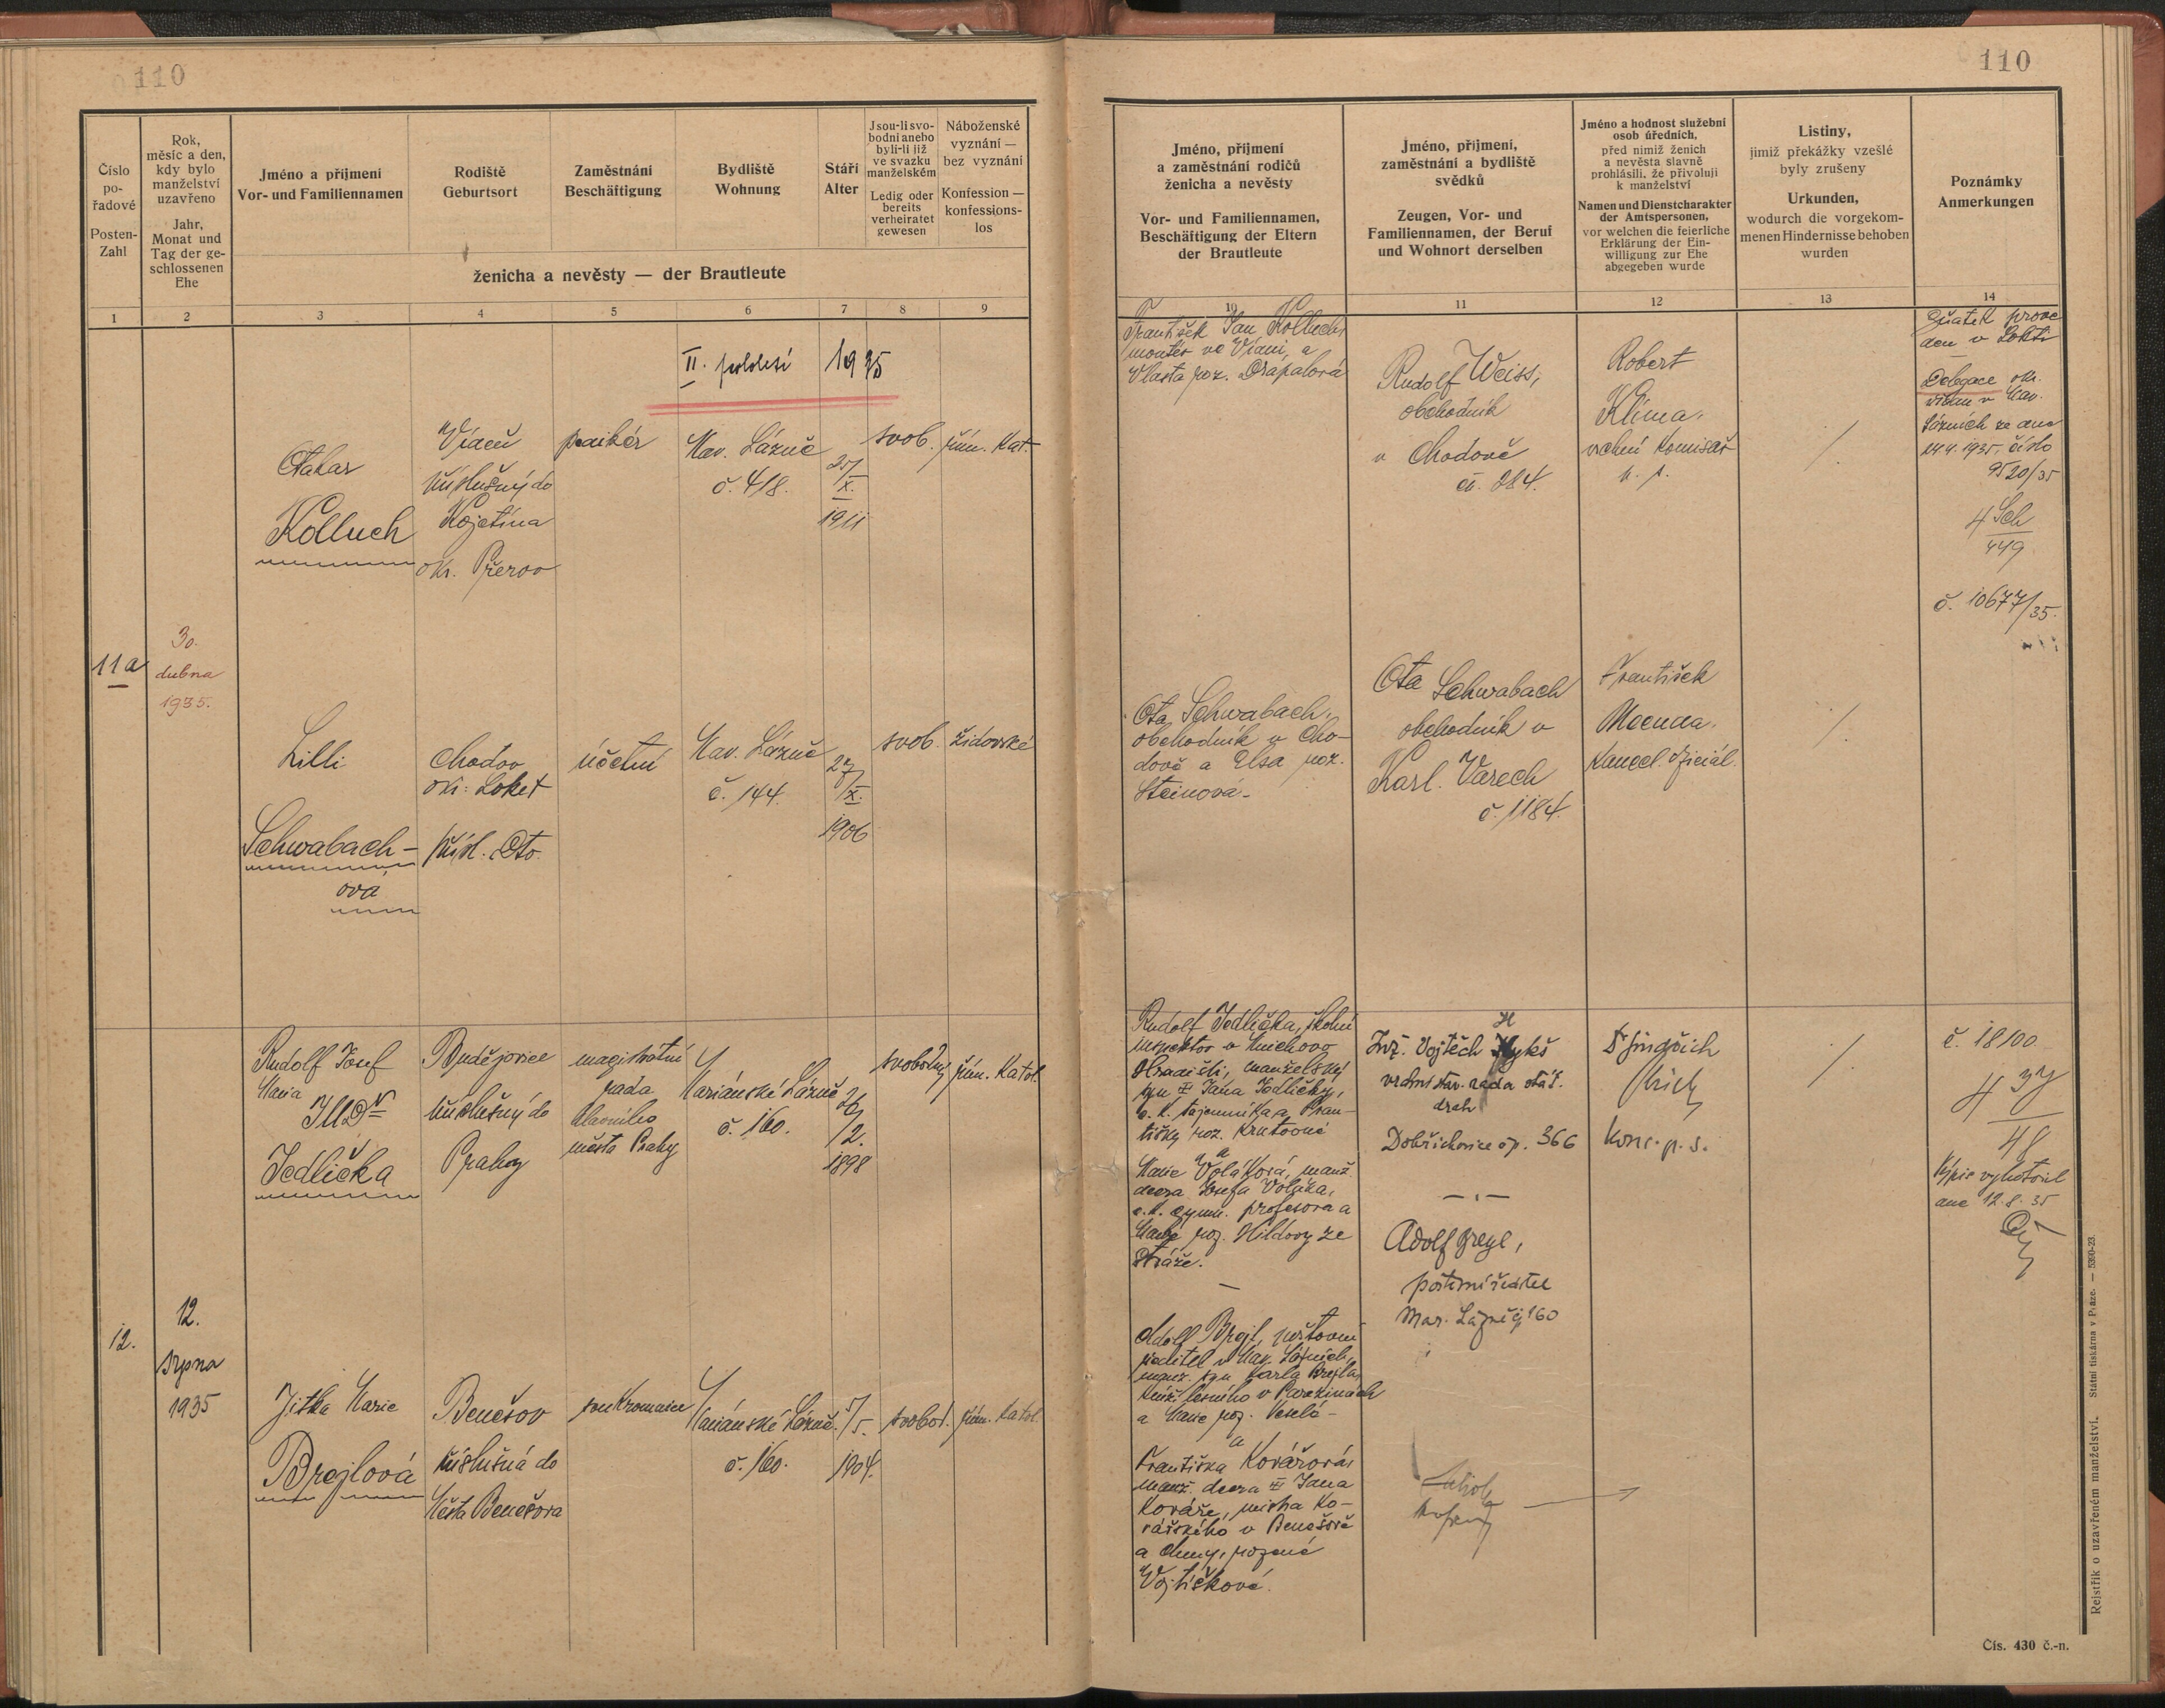 110
110
Číslo
po-
řadové
Posten-
Zahl
Rok,
měsíc a den,
kdy bylo
manželství
uzavřeno
Jahr,
Monat und
Tag der ge-
schlossenen
Ehe
Jméno a příjmení
Vor- und Familiennamen
Rodiště
Geburtsort
Zaměstnání
Beschäftigung
Bydliště
Wohnung
Stáří
Alter
Jsou-li svo-
bodni anebo
byli-li již
ve svazku
manželském
Ledig oder
bereits
verheiratet
gewesen
Náboženské
vyznání —
bez vyznání
Konfession —
konfessions-
los
ženicha a nevěsty — der Brautleute
1 2 3 4 5 6 7 8 9
Jméno, příjmení
a zaměstnání rodičů
ženicha a nevěsty
Vor- und Familiennamen,
Beschäftigung der Eltern
der Brautleute
Jméno, příjmení,
zaměstnání a bydliště
svědků
Zeugen, Vor- und
Familiennamen, der Beruf
und Wohnort derselben
Jméno a hodnost služební
osob úředních,
před nimiž ženich
a nevěsta slavně
prohlásili, že přivolují
k manželství
Namen und Dienstcharakter
der Amtspersonen,
vor welchen die feierliche
Erklärung der Ein-
willigung zur Ehe
abgegeben wurde
Listiny,
jimiž překážky vzešlé
byly zrušeny
Urkunden,
wodurch die vorgekom-
menen Hindernisse behoben
wurden
Poznámky
Anmerkungen
10 11 12 13 14
II. pololetí 1935
11a
30.
dubna
1935.
Otakar
Kolluch
Vídeň
příslušný do
Kojetína
okr. Přerov
Mar. Lázně
č. 418.
25/
X.
1911
svob.
řím. kat.
František Jan Kolluch,
montér ve Vídni, a
Vlasta roz. Drápalová
Rudolf Weiss,
obchodník
v Chodově
čp. 284.
Robert
Klíma,
vrchní komisař
p. s.
/.
Sňatek prove
den v Lokti
Delegace okr.
úřadu v Mar.
Lázních ze dne
24.4.1935, číslo
9520/35
4 Sch
449
č. 10677/35.
Lilli
Schwabach-
ová
Chodov
okr. Loket
přísl. Dto.
účetní
Mar. Lázně
č. 144.
27/
X.
1906
svob.
židovské
Ota Schwabach,
obchodník v Cho-
dově a Elsa roz.
Steinová.
Ota Schwabach
obchodník v
Karl. Varech
č. 1184.
František
kancel. oficiál.
/.
12.
12.
srpna
1935
Rudolf Josef
Maria
JUDr
Jedlička
Budějovice
příslušný do
Prahy
magistrátní
rada
hlavního
města Prahy
Mariánské Lázně
č. 160.
26/
/2.
1898
svobodný
řím. katol.
Rudolf Jedlička, školní
inspektor v Mnichovo
Hradišti, manželský
syn † Jana Jedličky,
c. k. tajemníka a Fran-
tišky roz. Krutovné
a
Marie Voláková, manž.
dcera Josefa Voláka,
c. k. gymn. profesora a
Marie roz. Hildovy ze
Stráže.
H
Inž. Vojtěch Hykš
vrchní stav. rada stát.
drah
Dobřichovice čp. 366
Dr Jindřich
konc. p. s.
/.
č. 18100
4 37
48
Výpis vyhotovil
dne 12.8.35
Jitka Marie
Brejlová
Benešov
příslušná do
Města Benešova
soukromnice
Mariánské Lázně.
č. 160.
5/
/5.
1904.
svobod.
řím. katol.
Adolf Brejl, poštovní
ředitel v Mar. Lázních,
manž. syn Karla Brejla,
kníž. lesního v Pařezinách
a Marie roz. Veselá -
a
Františka Kovářová,
manž. dcera † Jana
Kováře, mistra ko-
vářského v Benešově
a Anny, rozené
Vojtíškové.
Adolf Brejl,
poštovní ředitel
Mar. Lázně čp. 160
Rejstřík o uzavřeném manželství. Státní tiskárna v Praze. — 5390-23.
Čís. 430 č.-n.